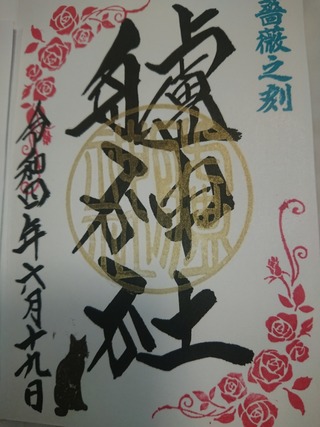 薔薇之刻
鱸神社
令和四年六月十九日